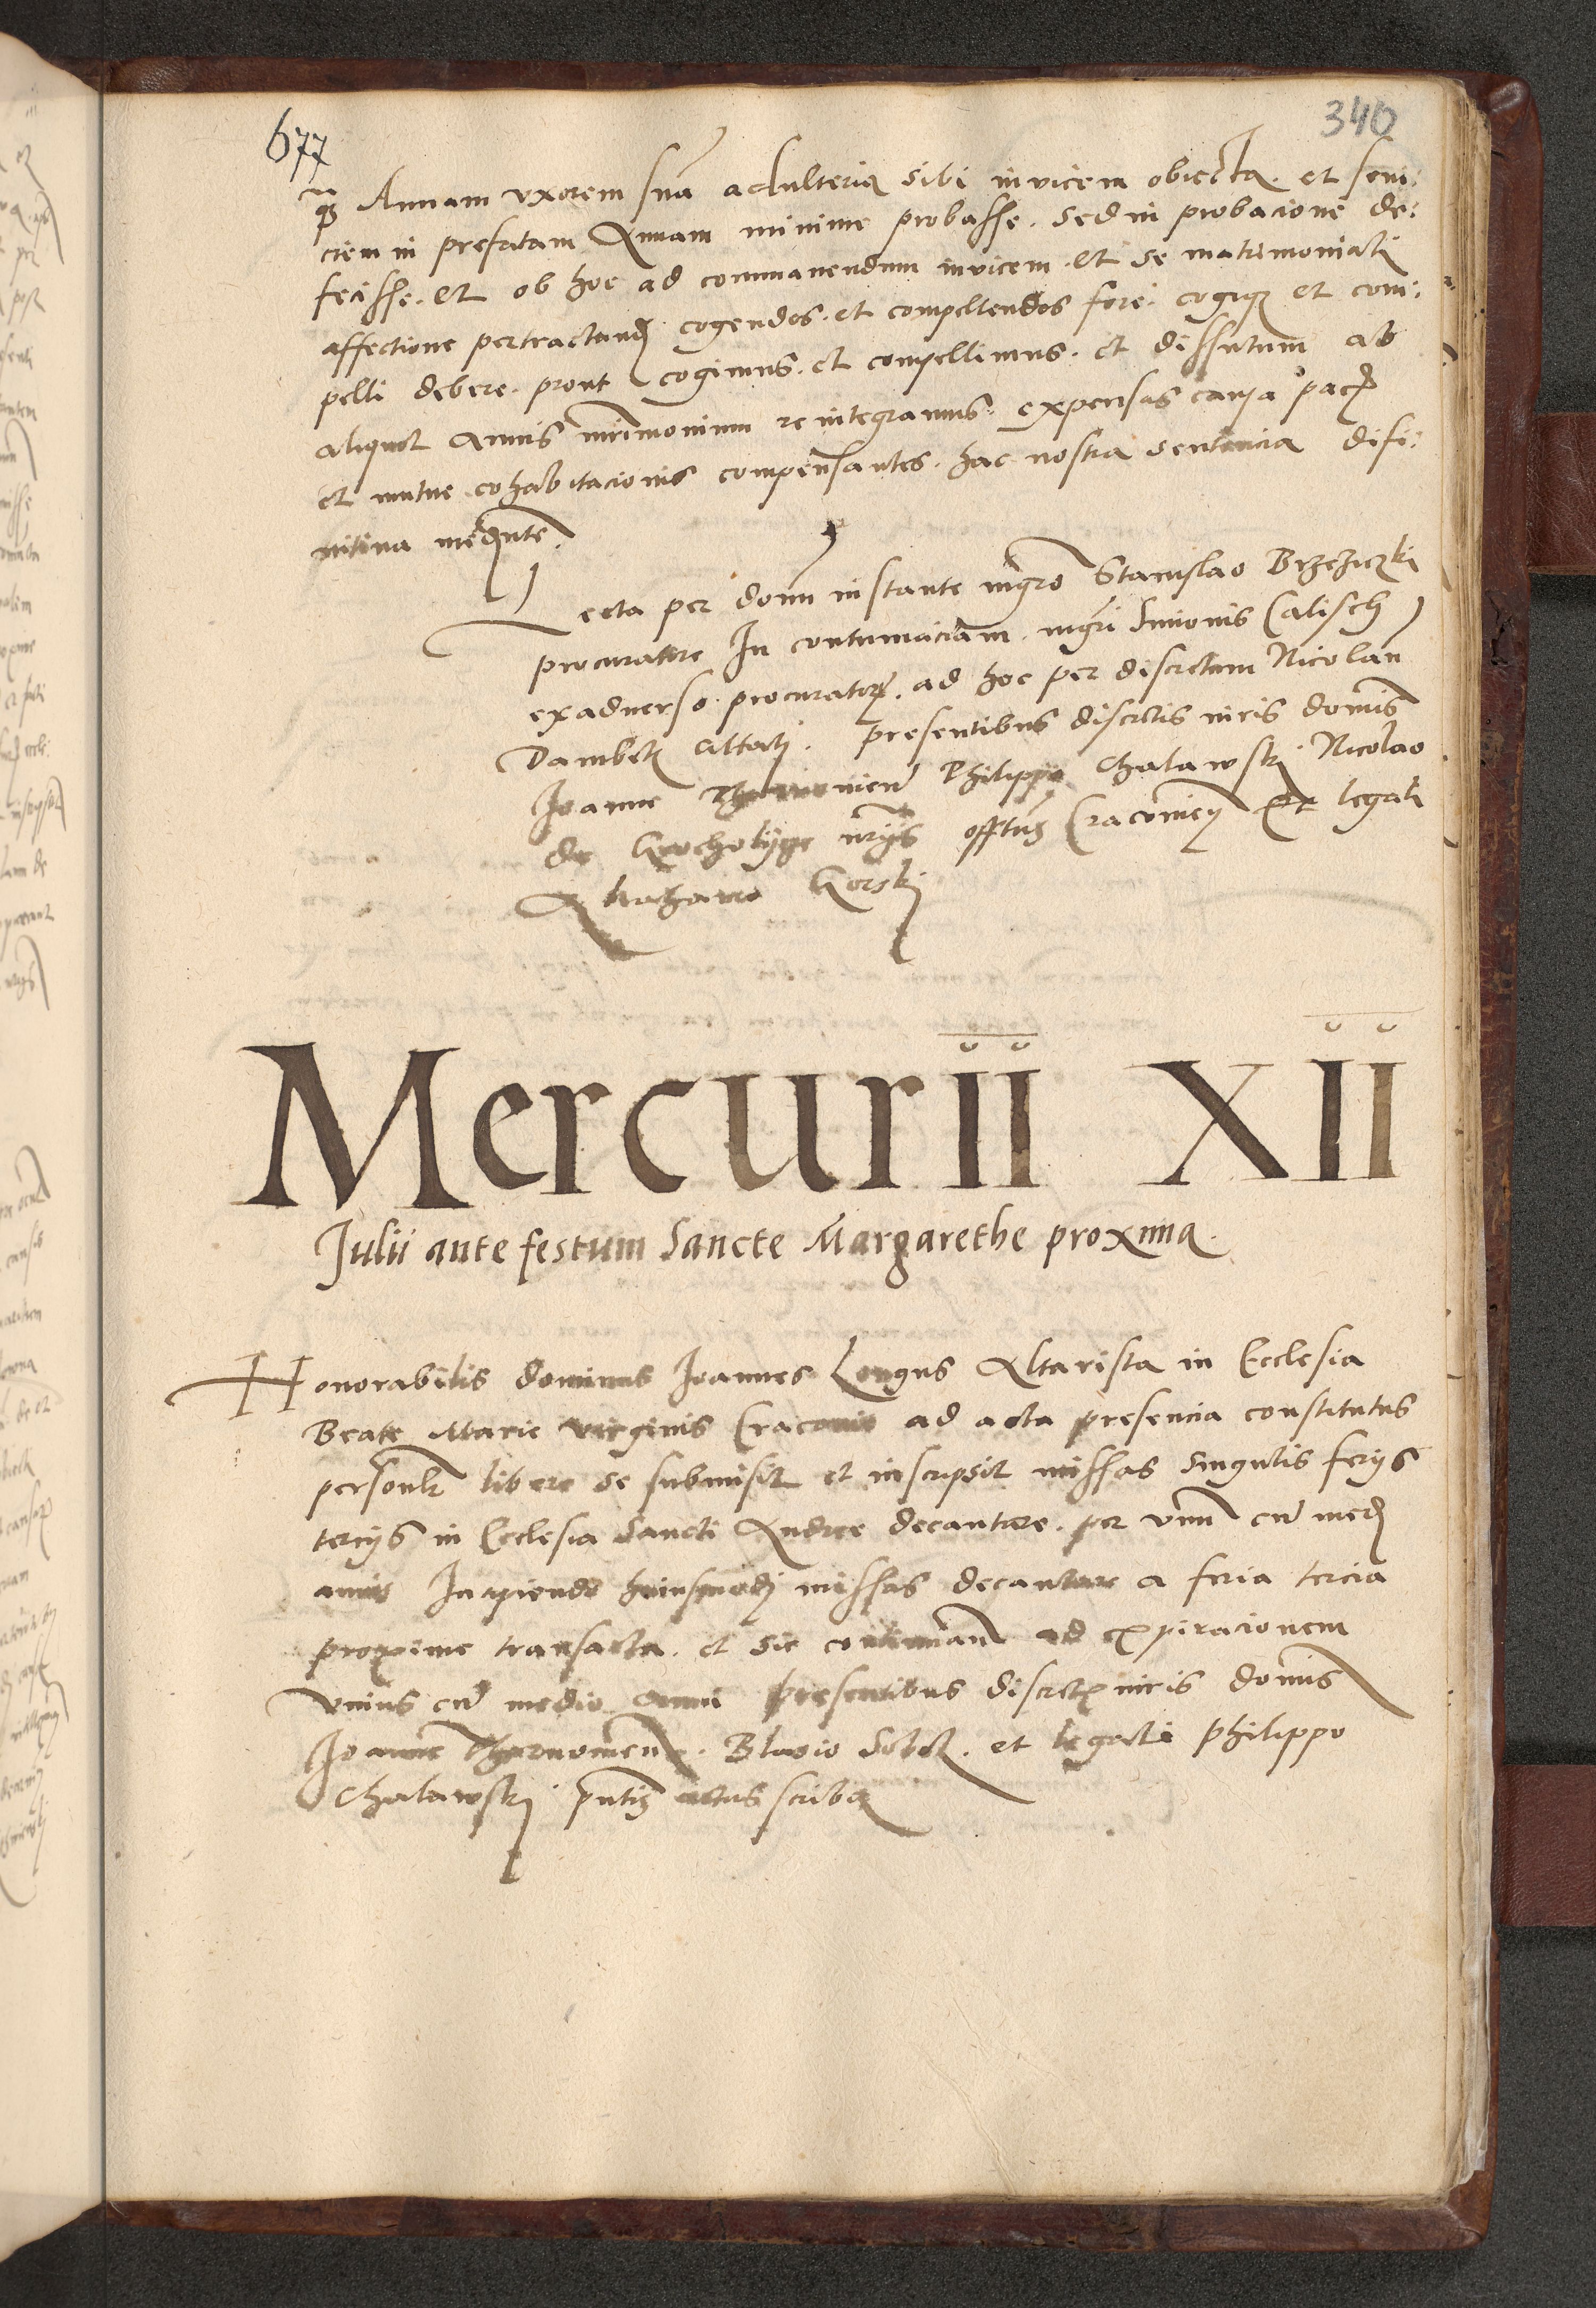 677
340
qz Annam vxorem suā adulteria sibi invicem obiecta. et sevi:
ciem in prefatam Annam minime probasse. sed in probacione de:
fecisse. et ob hoc ad commanendum invicem. et se matrimoniali
affectione pertractand cogendos. et compellendos fore. cogiqz et com:
pelli debere. prout cogimus. et compellimus. et dissutum ab
aliquot Annis mrimonium reintegramus. expensas causa pacis
et mutue cohabitacionis compensantes. hac nostra sentencia difi:
nitiua mediante.
Lecta per domī instante mgro Stanislao Brzeziczki
procuratore In contumaciam. mgri Simonis Calisch
exaduerso procuratoris. ad hoc per discretum Nicolaū
Dambek citati. presentibus discretis viris domīs
Joanne Philippo Chalawski Nicolao
de nrijs Cracouien et legali
Gorski
Mercurii XII
Julii ante festum Sancte Margarethe proxima.
Honorabilis dominus Joannes Longus Altarista in Ecclesia
Beate Marie virginis Cracouie ad acta presencia constitutus
personlr libere se submisit et inscripsit missas singulis ferijs
tercijs in Ecclesia Sancti Andree decantare. per vnū cū med
anno Incipiendo huiusmodj missas decantare a feria tercia
proxime transacta. et sic continuan ad expiracionem
vnius cū medio anni presentibus discretis viris domīs
Joanne Tharnowien. Blasio et legali Philippo
Chalawski pntis actus scriba